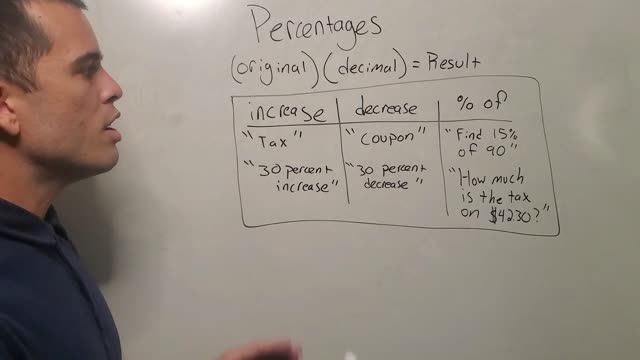 Percentages
(original)(decimal) = Result
increase decrease % of
"Tax" "Coupon" "Find 15%
of 90"
"30 percent
increase" "30 percent
decrease" "How much
is the tax
on $42.30?"